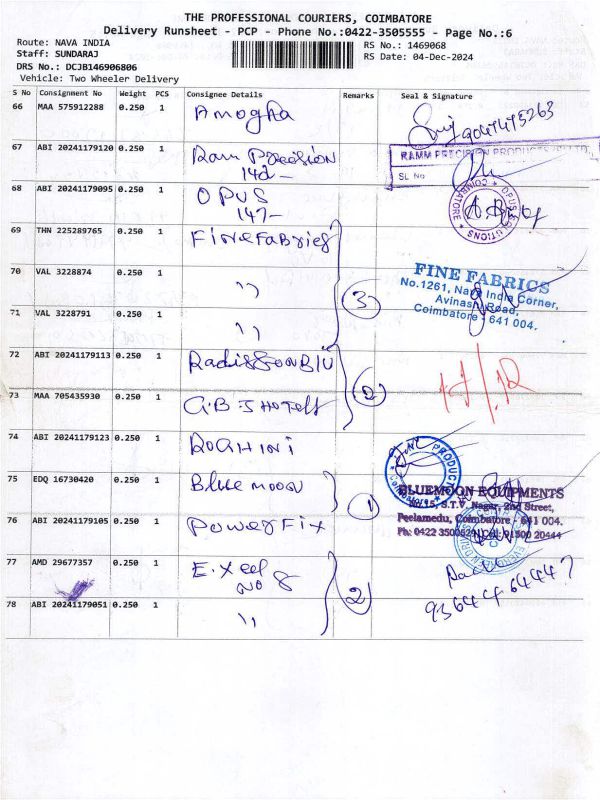 THE PROFESSIONAL COURIERS, COIMBATORE
Delivery Runsheet - PCP - Phone No.:0422-3505555 - Page No.:6
Route: NAVA INDIA
Staff: SUNDARAJ
DRS No.: DCJB146906806
Vehicle: Two Wheeler Delivery
RS No.: 1469068
RS Date: 04-Dec-2024
S No Consignment No Weight PCS Consignee Details Remarks Seal & Signature
66 MAA 575912288 0.250 1 Amogha
67 ABI 20241179120 0.250 1 Ram Precision
142-
RAMM PRECISION PRODUCTS
SL No
68 ABI 20241179095 0.250 1 OPUS
147-
COIMBATORE * OPUS SOLUTIONS *
69 THN 225289765 0.250 1 Fine Fabries
70 VAL 3228874 0.250 1 "
71 VAL 3228791 0.250 1 "
3
FINE FABRICS
No.1261, Nava India Corner,
Avinashi Road,
Coimbatore - 641 004.
72 ABI 20241179113 0.250 1 Radisson BLU
73 MAA 705435930 0.250 1 G.B.S Hotels
2
74 ABI 20241179123 0.250 1 ROGHINI
75 EDQ 16730420 0.250 1 Blue moon
1
BLUEMOON EQUIPMENTS
No.15, S.T.V. Nagar, 2nd Street,
Peelamedu, Coimbatore - 641 004.
76 ABI 20241179105 0.250 1 Power Fix
77 AMD 29677357 0.250 1 Excel
No 8
78 ABI 20241179051 0.250 1 "
2